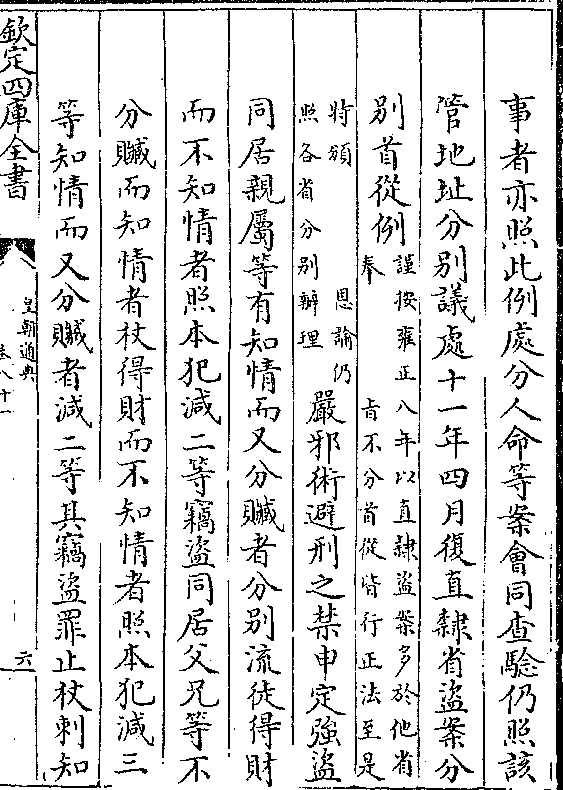 事者亦照此例處分人命等案會同查驗仍照該
管地址分別議處十一年四月復直隸省盜案分
別首從例
謹按雍正八年以直隸盜案多於他省
奉　旨不分首從皆行正法至是
特頒　恩諭仍
照各省分別辦理
嚴邪術避刑之禁申定強盜
同居親屬等有知情而又分贓者分別流徒得財
而不知情者照本犯減二等竊盜同居父兄等不
分贓而知情者杖得財而不知情者照本犯減三
等知情而又分贓者減二等其竊盜罪止杖刺知
欽定四庫全書
皇朝通典
卷八十一
六